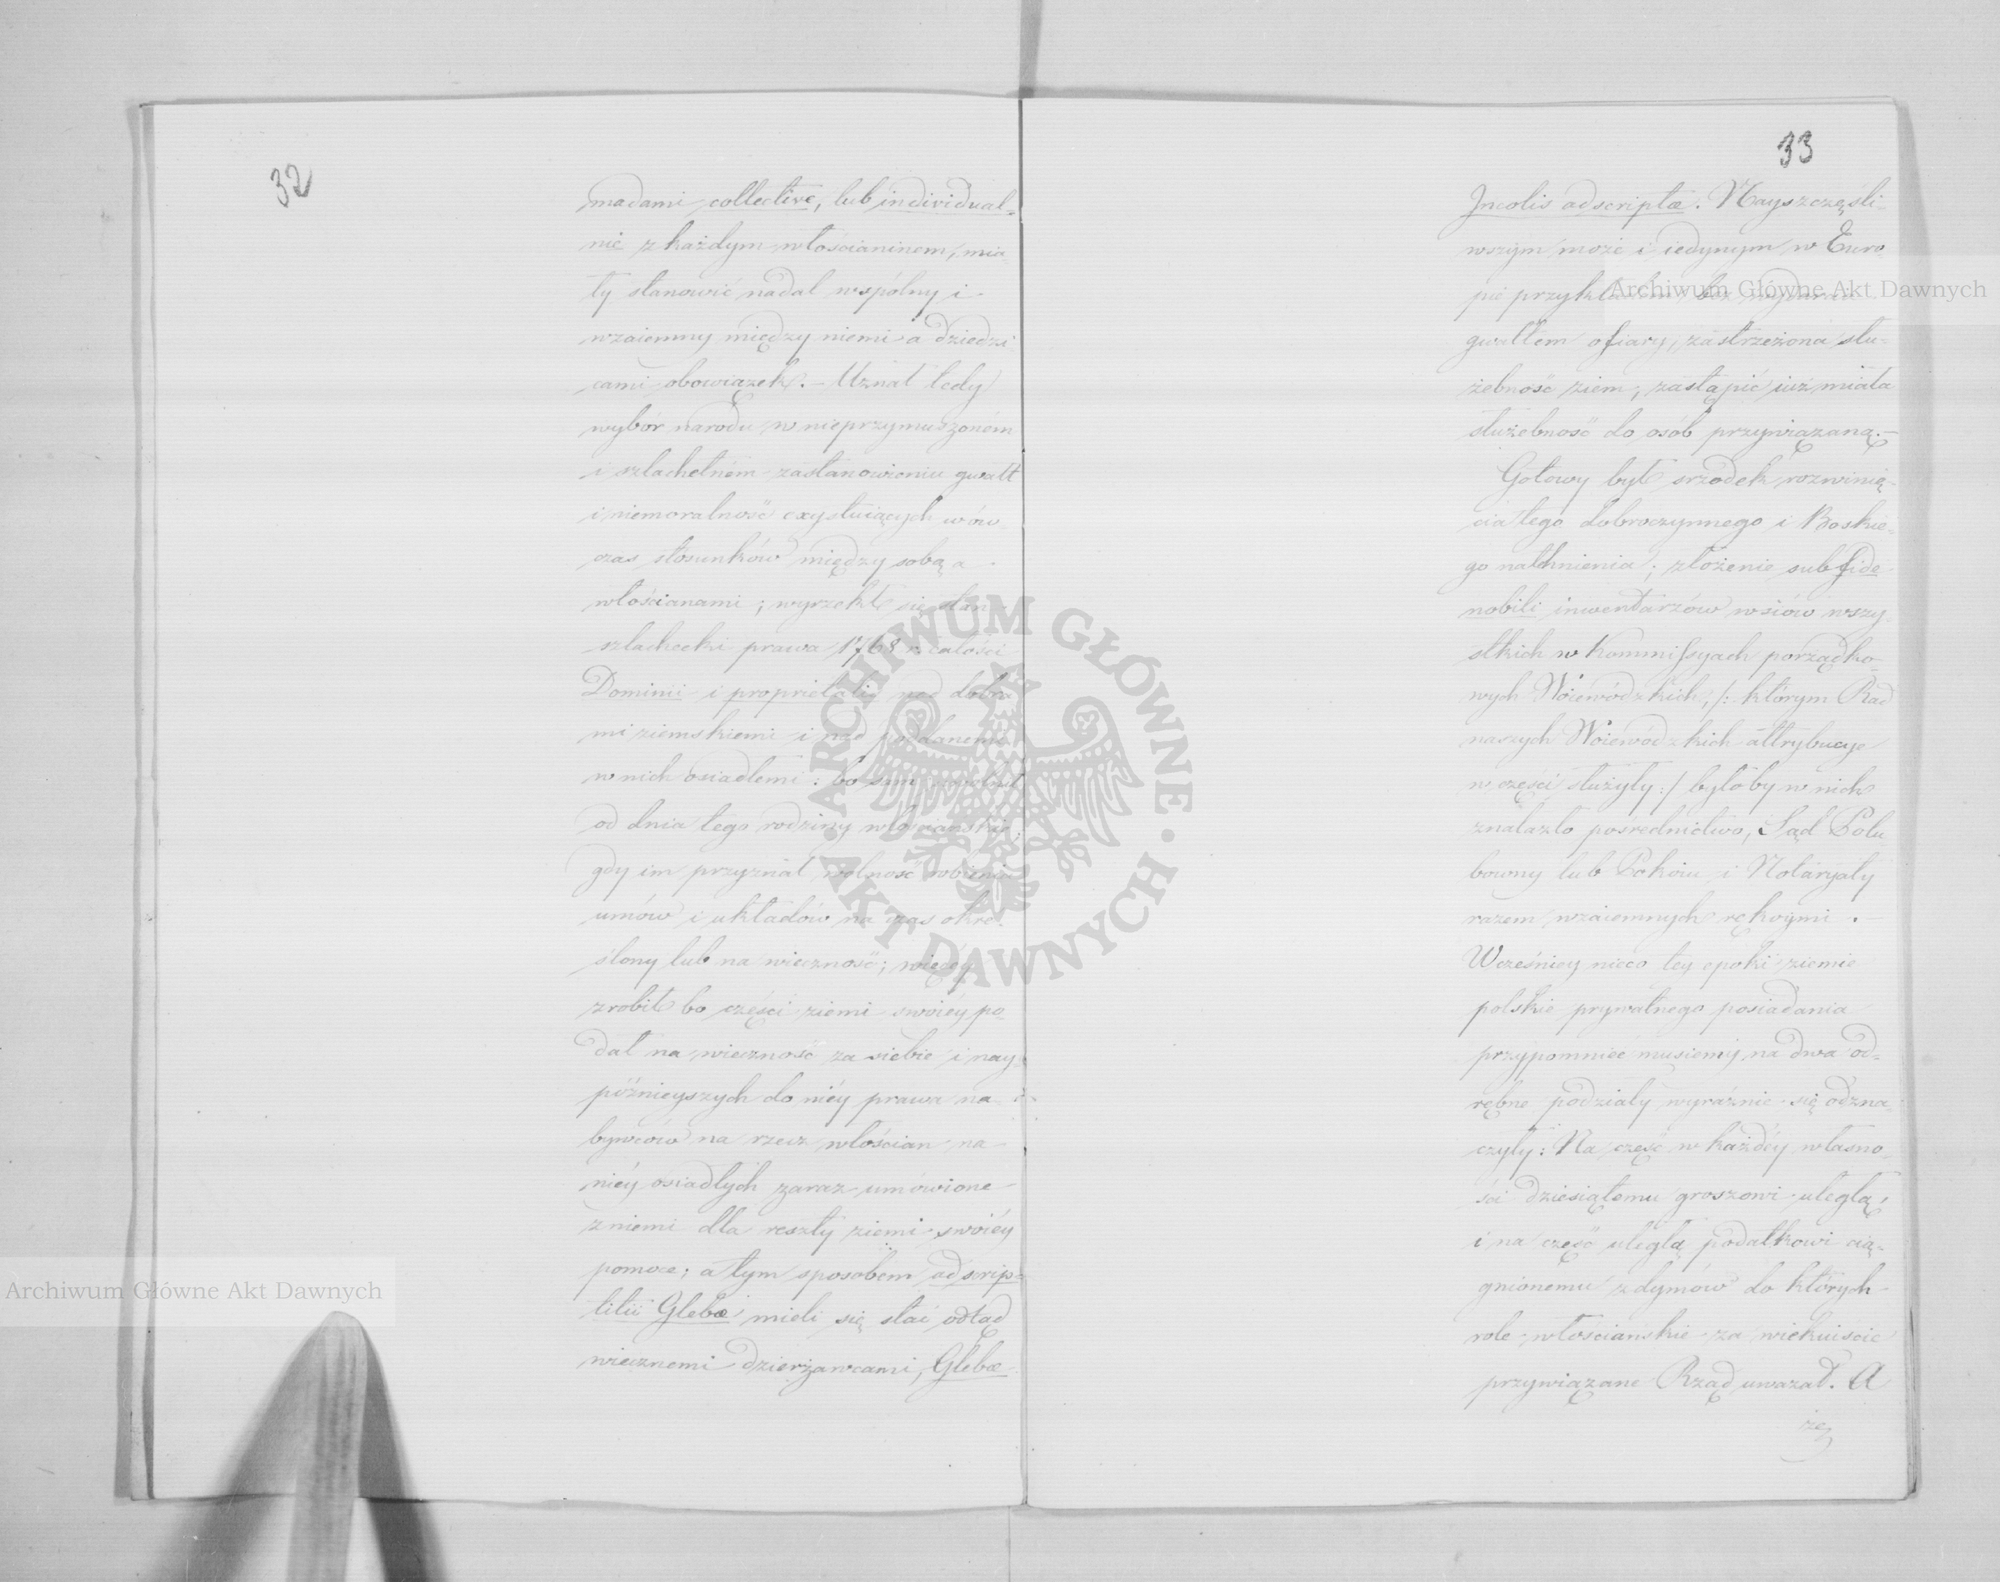 32
madami collective, lub individual-
nie z każdym włościaninem, mia-
ły stanowić nadal wspólny i
wzaiemny między niemi a dziedzi
cami obowiązek. – Uznał tedy
wybór narodu w nieprzymuszoném
i szlachetném zastanowieniu gwałt
i niemoralność exystuiących wów-
czas stósunków między sobą a
włościanami; wyrzekł się stan
szlachecki prawa 1768 r. całości
Dominii i proprietatis nad dobra
mi ziemskiemi i nad poddanemi
w nich osiadłemi: bo sam
od dnia tego rodziny włościańskie,
gdy im przyznał wolność robienia
umów i układów na czas okre-
ślony lub na wieczność; więcéy
zrobił bo części ziemi swoiéy po-
dał na wieczność za siebie i nay-
późnieyszych do niéy prawa na-
bywców na rzecz włościan na
niéy osiadłych zaraz umówione
z niemi dla reszty ziemi swoiéy
pomoce; a tym sposobem adscrip-
titii Glebæ mieli się stać odtąd
wiecznemi dzierżawcami, Glebæ
33
Incolis adscriptæ. Nayszczęśli-
wszym może i iedynym w Euro-
pie przykładem bez
gwałtem ofiary, zastrzeżona słu-
żebność ziem, zastąpić iuż miała
służebność do osób przywiązaną. –
Gotowy był srzodek rozwinię-
cia tego dobroczynnego i Boskie-
go natchnienia; złożenie sub fide
nobili inwentarzów wsiów wszy-
stkich w Kommissyach porządko-
wych Woiewódzkich, /: którym Rad
naszych Woiewódzkich attrybucye
w części służyły :/ byłoby w nich
znalazło posrednictwo, Sąd Polu
bowny lub Pokoiu i Notaryaty
razem wzaiemnych rękoymi. –
Wcześniey nieco tey epoki ziemie
polskie prywatnego posiadania
przypomnieć musiemy na dwa od-
rębne podziały wyraźnie się odzna-
czyły: Na część w każdéy własno-
ści dziesiątemu groszowi uległą,
i na część uległą podatkowi cią-
gnionemu z dymów do których
role włościańskie za wiekuiście
przywiązane Rząd uważał. A
że
Archiwum Główne Akt Dawnych
Archiwum Główne Akt Dawnych
ARCHIWUM GŁÓWNE · AKT DAWNYCH ·